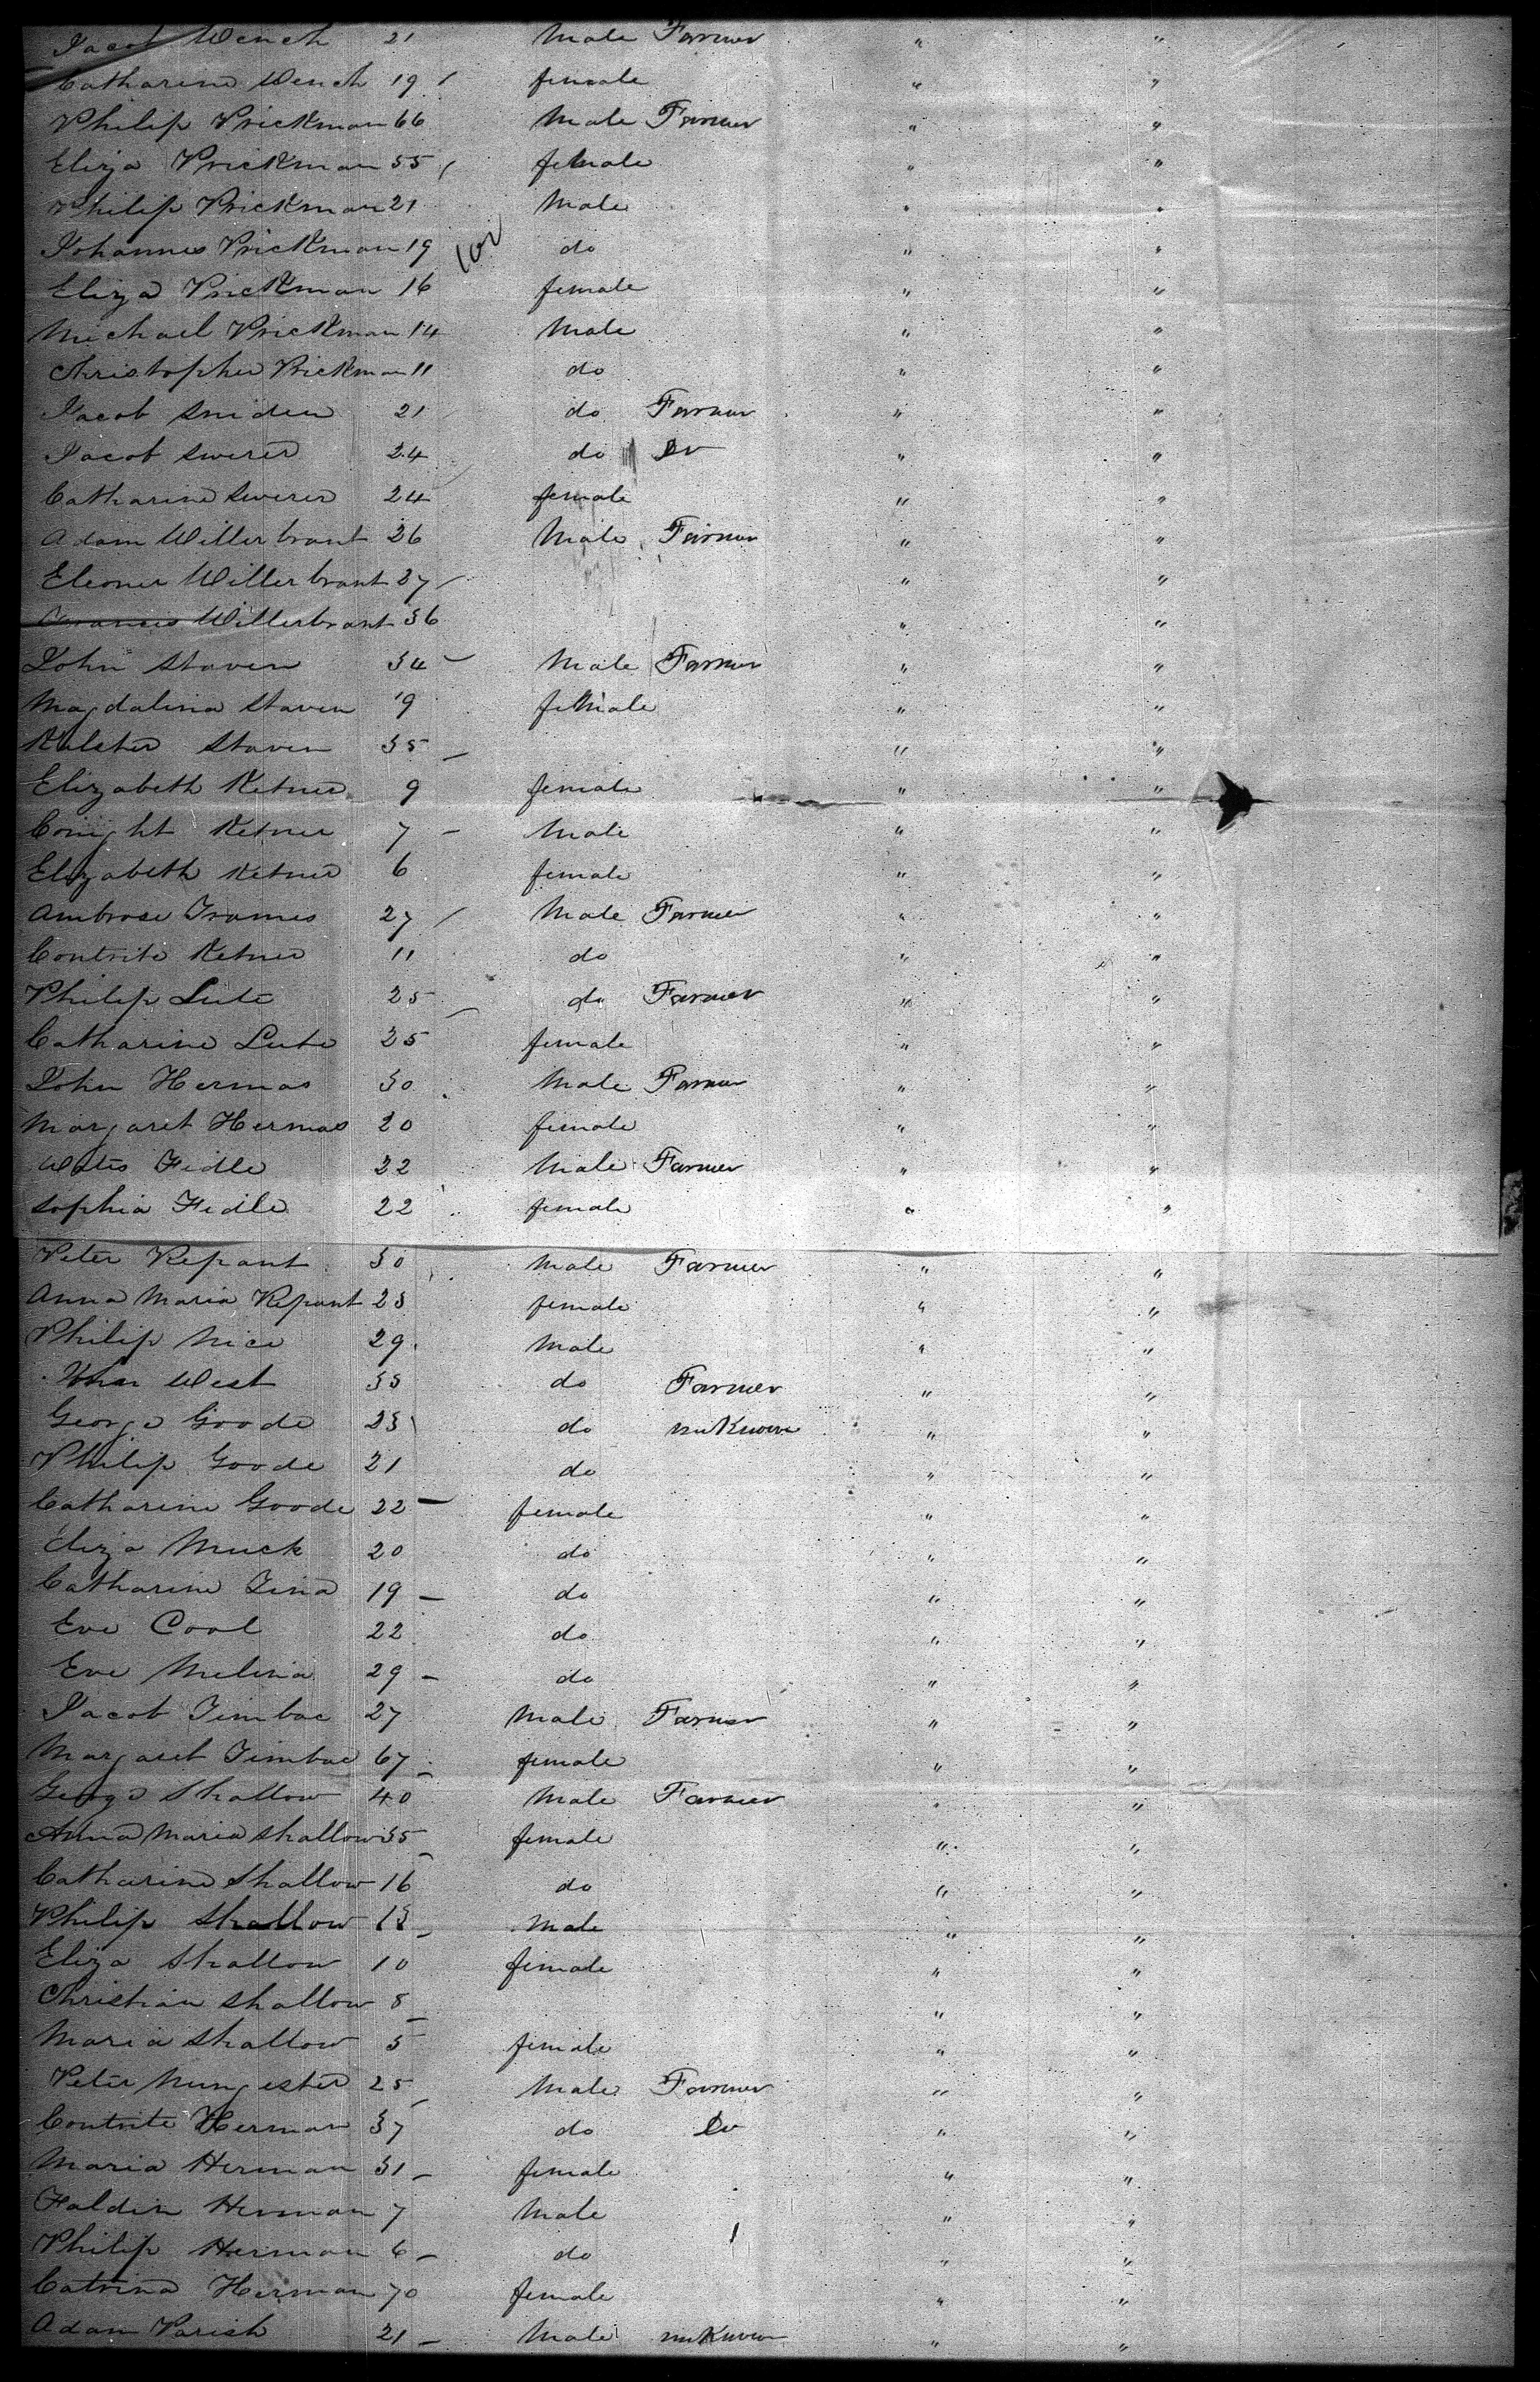 Jacob Wench 21 Male Farmer " "
Catharine Wench 19 female " "
Philip Prickman 66 Male Farmer " "
Eliza Prickman 55 female " "
Philip Prickman 21 Male " "
Johannes Prickman 19 do " "
102
Eliza Prickman 16 female " "
Michael Prickman 14 Male " "
Christopher Prickman 11 do " "
Jacob Snider 21 do Farmer " "
Jacob Swerer 24 do Do " "
Catharine Swerer 24 female " "
Adam Willerbrant 26 Male Farmer " "
Eleoner Willerbrant 27 " "
Francis Willerbrant 36 " "
John Staven 34 Male Farmer " "
Magdalina Staven 19 female " "
Staven 35 " "
Elizabeth Ketner 9 female " "
Conight Ketner 7 Male " "
Elizabeth Ketner 6 female " "
Ambrose Trames 27 Male Farmer " "
Contrite Ketner 11 do " "
Philip Lute 25 do Farmer " "
Catharine Lute 25 female " "
John Hermas 30 Male Farmer " "
Margaret Hermas 20 female " "
Fidle 22 Male Farmer " "
Sophia Fidle 22 female " "
Peter Repant 30 Male Farmer " "
Anna Maria Repant 23 female " "
Philip Nice 29 Male " "
John West 35 do Farmer " "
George Goode 23 do unknown " "
Philip Goode 21 do " "
Catharine Goode 22 female " "
Eliza Muck 20 do " "
Catharine Zina 19 do " "
Eve Cool 22 do " "
Eve Melina 29 do " "
Jacob Timbac 27 Male Farmer " "
Margaret Timbac 67 female " "
George Shallow 40 Male Farmer " "
Anna Maria Shallow 35 female " "
Catharine Shallow 16 do " "
Philip Shallow 13 Male " "
Eliza Shallow 10 female " "
Christian Shallow 8 " "
Maria Shallow 5 female " "
Peter Nungester 25 Male Farmer " "
Contrite Herman 37 do Do " "
Maria Herman 31 female " "
Faldin Herman 7 Male " "
Philip Herman 6 do " "
Catrina Herman 70 female " "
Adam Parish 21 Male unknown " "